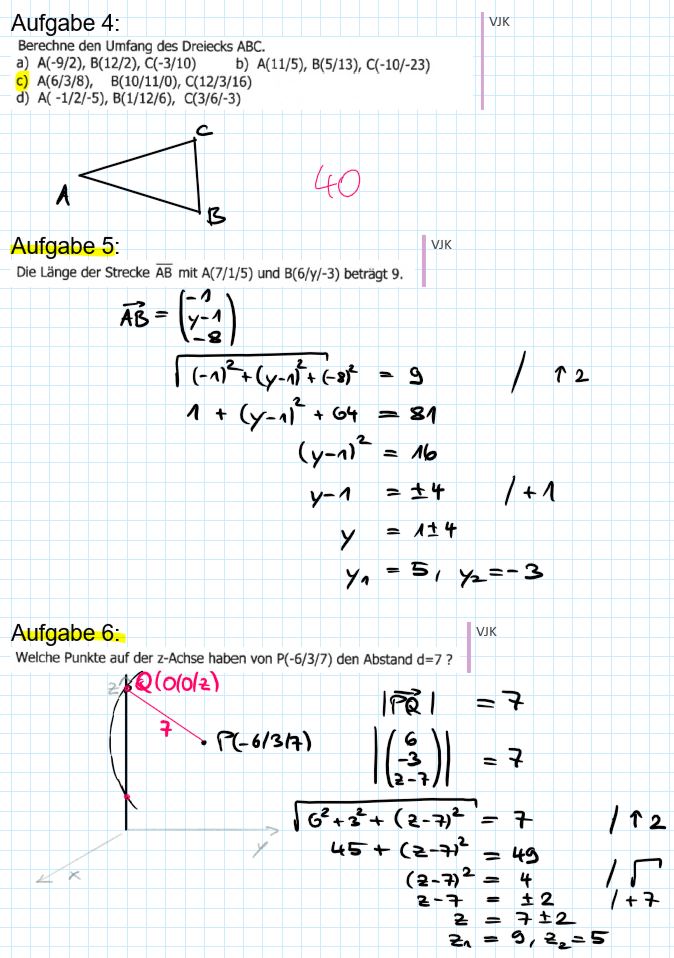 Aufgabe 4:
VJK
Berechne den Umfang des Dreiecks ABC.
a) A(-9/2), B(12/2), C(-3/10) b) A(11/5), B(5/13), C(-10/-23)
c) A(6/3/8), B(10/11/0), C(12/3/16)
d) A( -1/2/-5), B(1/12/6), C(3/6/-3)
C
A
40
B
Aufgabe 5:
VJK
Die Länge der Strecke A̅B̅ mit A(7/1/5) und B(6/y/-3) beträgt 9.
AB⃗ = (-1 y-1 -8)
√((-1)² + (y-1)² + (-8)²) = 9 / ↑2
1 + (y-1)² + 64 = 81
(y-1)² = 16
y-1 = ±4 / +1
y = 1±4
y₁ = 5, y₂ = -3
Aufgabe 6:
VJK
Welche Punkte auf der z-Achse haben von P(-6/3/7) den Abstand d=7 ?
z Q(0/0/z)
|PQ⃗| = 7
7
P(-6/3/7)
|(6 -3 z-7)| = 7
√(6² + 3² + (z-7)²) = 7 / ↑2
y
45 + (z-7)² = 49
x
(z-7)² = 4 / √
z-7 = ±2 / +7
z = 7±2
z₁ = 9, z₂ = 5